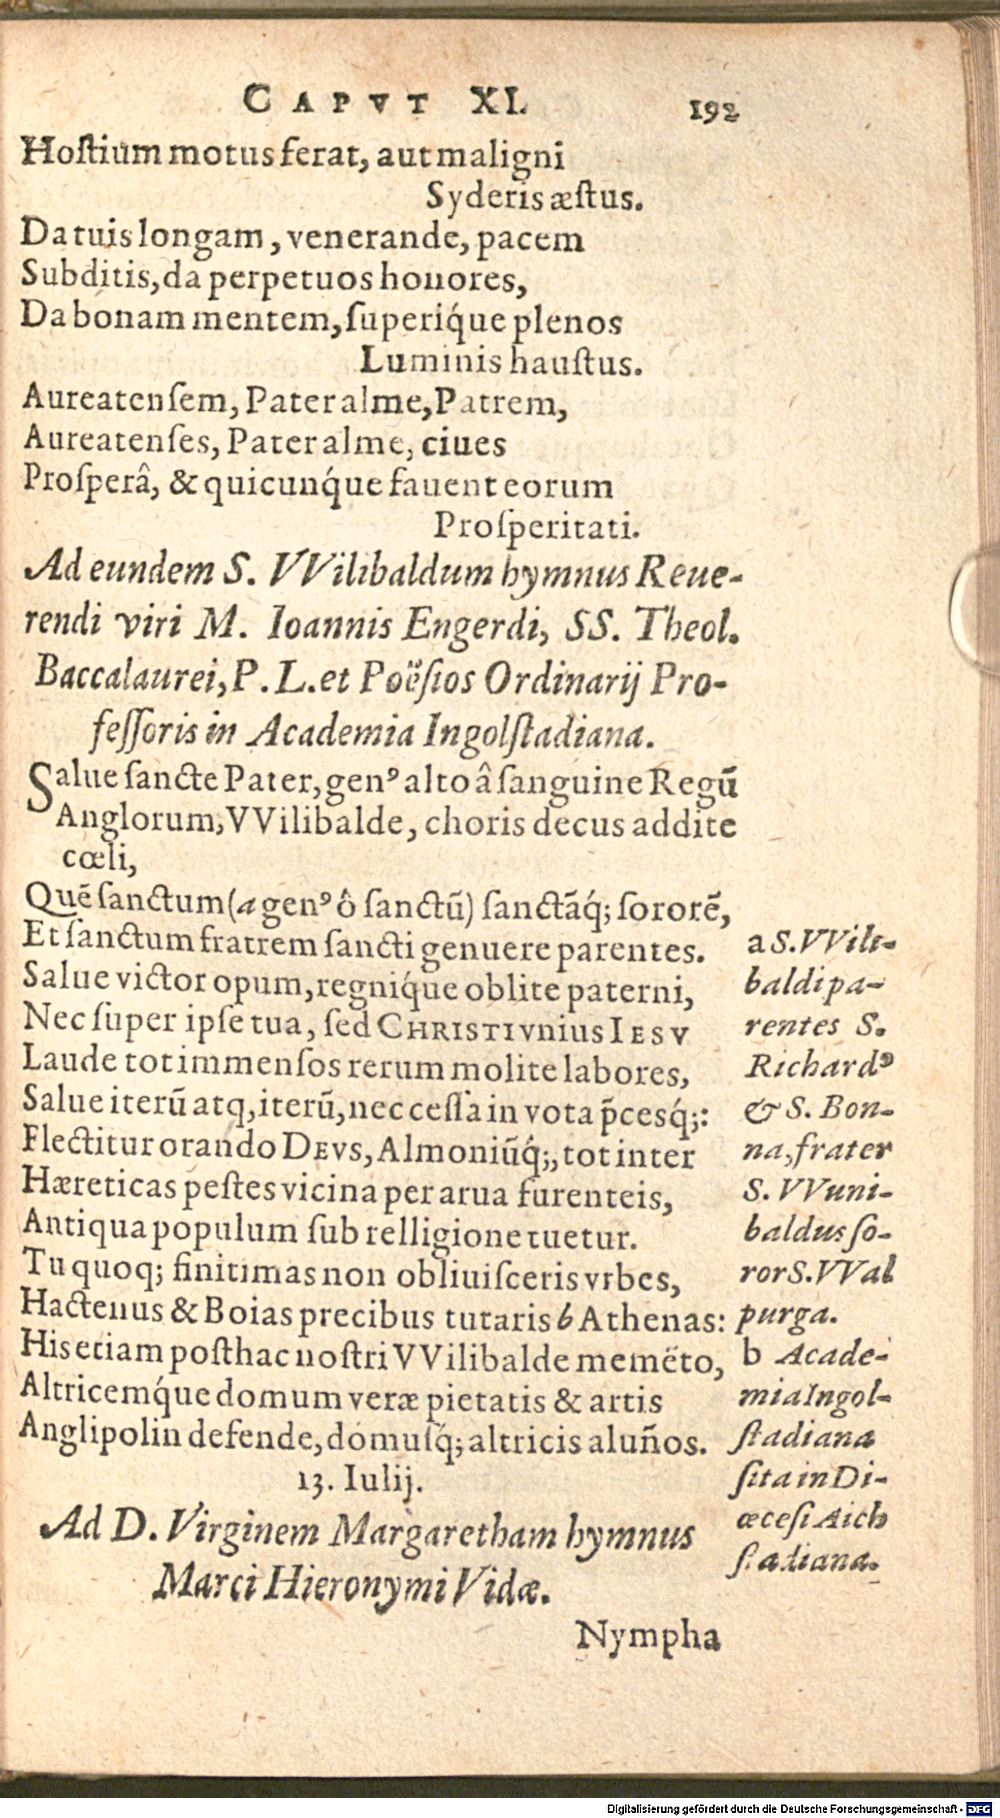 CAPVT XI. 192
Hoſtium motus ferat, aut maligni
Syderis æſtus.
Da tuis longam, venerande, pacem
Subditis, da perpetuos honores,
Da bonam mentem, ſuperiq́ue plenos
Luminis hauſtus.
Aureatenſem, Pater alme, Patrem,
Aureatenſes, Pater alme, ciues
Proſperâ, & quicunq́ue fauent eorum
Proſperitati.
Ad eundem S. VVilibaldum hymnus Reue-
rendi viri M. Ioannis Engerdi, SS. Theol.
Baccalaurei, P. L. et Poëſios Ordinarij Pro-
feſſoris in Academia Ingolſtadiana.
Salue ſancte Pater, genꝰ alto â ſanguine Regũ
Anglorum, VVilibalde, choris decus addite
cœli,
Quẽ ſanctum (a genꝰ ô ſanctũ) ſanctãq́; ſororẽ,
Et ſanctum fratrem ſancti genuere parentes.
Salue victor opum, regniq́ue oblite paterni,
Nec ſuper ipſe tua, ſed CHRISTI vnius IESV
Laude tot immenſos rerum molite labores,
Salue iterũ atq, iterũ, nec ceſſa in vota p̃cesq́;:
Flectitur orando DEVS, Almoniũq́;, tot inter
Hæreticas peſtes vicina per arua furenteis,
Antiqua populum ſub relligione tuetur.
Tu quoq; finitimas non obliuiſceris vrbes,
Hactenus & Boias precibus tutaris b Athenas:
His etiam poſthac noſtri VVilibalde memẽto,
Altricemq́ue domum veræ pietatis & artis
Anglipolin defende, domuſq́; altricis alum̃os.
a S. VVili-
baldi pa-
rentes S.
Richardꝰ
& S. Bon-
na, frater
S. VVuni-
baldus ſo-
ror S. VVal
purga.
b Acade-
mia Ingol-
ſtadiana
ſita in Di-
œceſi Aich
ſtadiana.
13. Iulij.
Ad D. Virginem Margaretham hymnus
Marci Hieronymi Vidæ.
Nympha
Digitalisierung gefördert durch die Deutsche Forschungsgemeinschaft - DFG